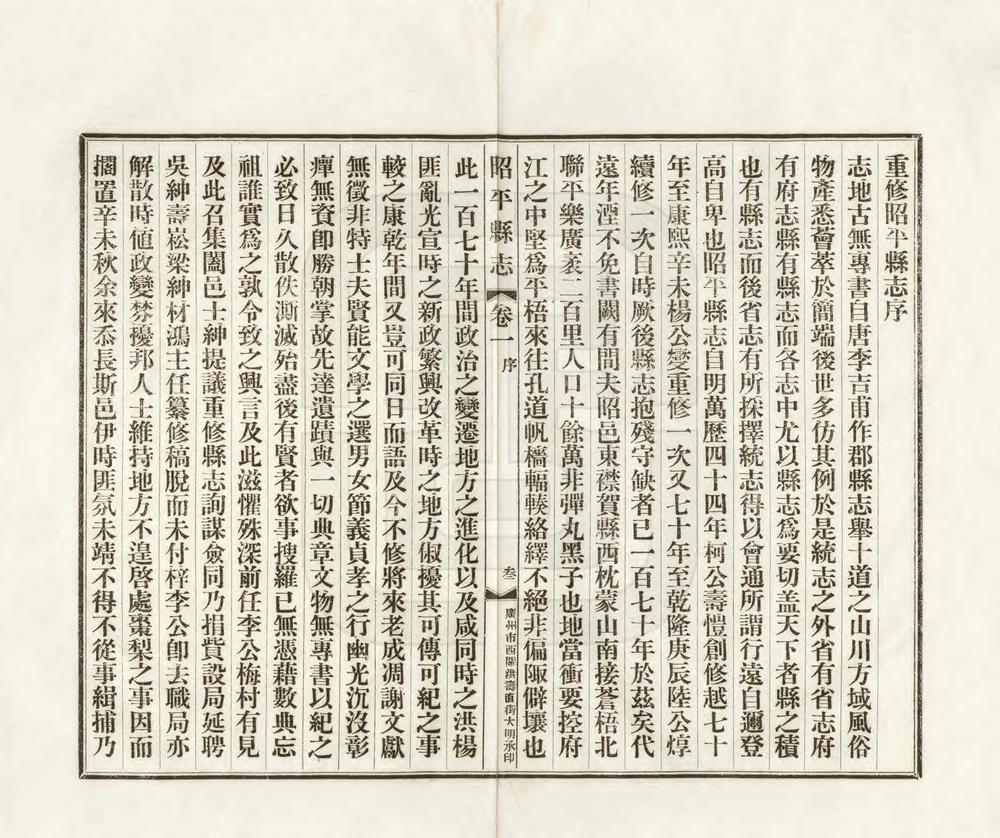 重修昭平縣志序
志地古無專書自唐李吉甫作郡縣志舉十道之山川方域風俗
物產悉薈萃於簡端後世多仿其例於是統志之外省有省志府
有府志縣有縣志而各志中尤以縣志爲要切盖天下者縣之積
也有縣志而後省志有所採擇統志得以會通所謂行遠自邇登
高自卑也昭平縣志自明萬歷四十四年柯公壽愷創修越七十
年至康熙辛未楊公燮重修一次又七十年至乾隆庚辰陸公焞
續修一次自時厥後縣志抱殘守缺者已一百七十年於茲矣代
遠年湮不免書闕有間夫昭邑東襟賀縣西枕蒙山南接蒼梧北
聯平樂廣袤二百里人口十餘萬非彈丸黑子也地當衝要控府
江之中堅爲平梧來往孔道帆檣輻輳絡繹不絕非偏陬僻壤也
昭平縣志 卷一 序 叁 廣州市西關洪壽直街大明承印
此一百七十年間政治之變遷地方之進化以及咸同時之洪楊
匪亂光宣時之新政繁興改革時之地方俶擾其可傳可紀之事
較之康乾年間又豈可同日而語及今不修將來老成凋謝文獻
無徵非特士夫賢能文學之選男女節義貞孝之行幽光沉沒彰
癉無資即勝朝掌故先達遺蹟與一切典章文物無專書以紀之
必致日久散佚澌滅殆盡後有賢者欲事搜羅已無憑藉數典忘
祖誰實爲之孰令致之興言及此滋懼殊深前任李公梅村有見
及此召集闔邑士紳提議重修縣志詢謀僉同乃捐貲設局延聘
吳紳壽崧梁紳材鴻主任纂修稿脫而未付梓李公卽去職局亦
解散時値政變棼擾邦人士維持地方不遑啓處棗梨之事因而
擱置辛未秋余來忝長斯邑伊時匪氛未靖不得不從事緝捕乃